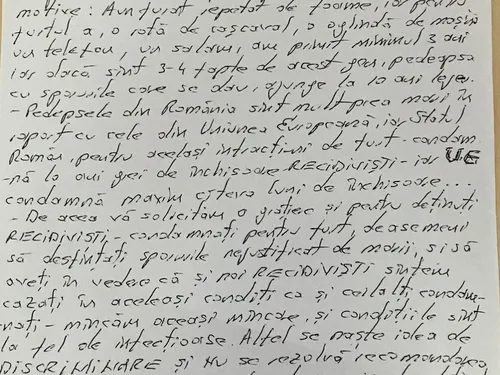 motive: Am furat repetat de foame, iar pentru
furtul a, o rotă de cașcaval, o oglindă de mașină
un telefon, un salam, am primit minimul 3 ani
iar dacă sînt 3-4 fapte de acest gen, pedeapsa
cu sporurile care se dau, ajunge la 10 ani lejer.
- Pedepsele din România sînt mult prea mari în
raport cu cele din Uniunea Europeană, iar Statul
Român, pentru aceleași infracțiuni de furt - condam
nă la ani grei de închisoare RECIDIVIȘTI - iar UE
condamnă maxim cîteva luni de închisoare...
- De aceea vă solicităm o grațiere și pentru deținuți
RECIDIVIȘTI, - condamnați pentru furt, deasemeni
să desființați sporurile nejustificat de mari, și să
aveți în vedere că și noi RECIDIVIȘTI sîntem
cazați în aceleași condiții ca și ceilalți condam-
nați - mîncăm aceași mîncare, și condițiile sînt
la fel de infecțioase. Altfel se naște ideea de
DISCRIMINARE și NU se rezolvă recomandarea